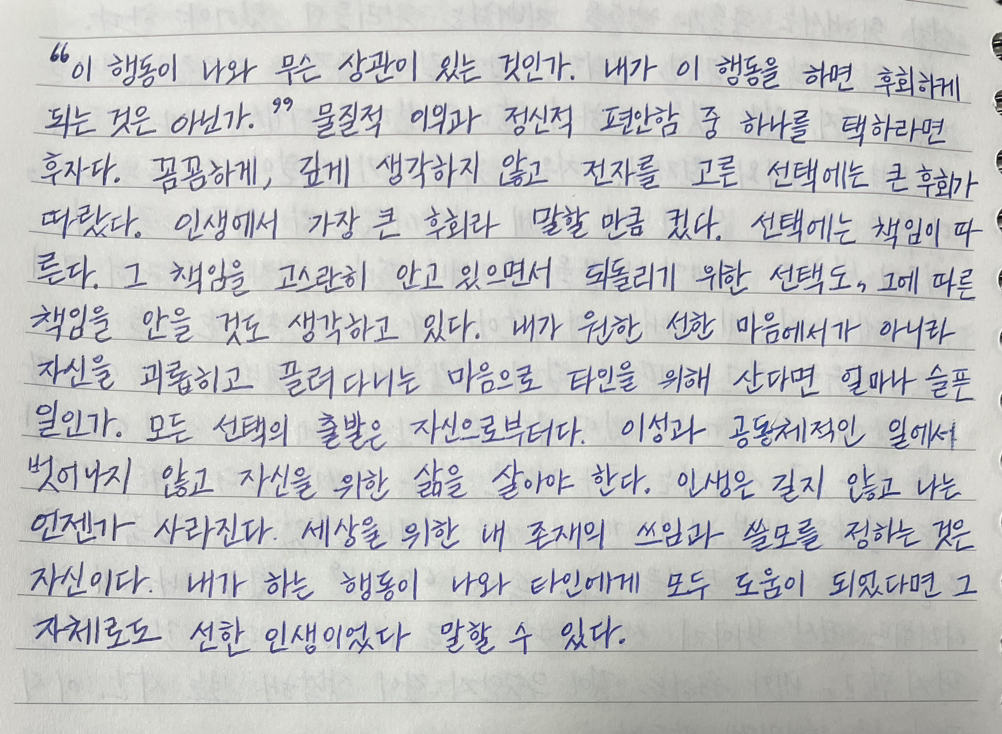 “이 행동이 나와 무슨 상관이 있는 것인가. 내가 이 행동을 하면 후회하게
되는 것은 아닌가.” 물질적 이익과 정신적 편안함 중 하나를 택하라면
후자다. 꼼꼼하게, 깊게 생각하지 않고 전자를 고른 선택에는 큰 후회가
따랐다. 인생에서 가장 큰 후회라 말할 만큼 컸다. 선택에는 책임이 따
른다. 그 책임을 고스란히 안고 있으면서 되돌리기 위한 선택도, 그에 따른
책임을 안을 것도 생각하고 있다. 내가 원한 선한 마음에서가 아니라
자신을 괴롭히고 끌려다니는 마음으로 타인을 위해 산다면 얼마나 슬픈
일인가. 모든 선택의 출발은 자신으로부터다. 이성과 공동체적인 일에서
벗어나지 않고 자신을 위한 삶을 살아야 한다. 인생은 길지 않고 나는
언젠가 사라진다. 세상을 위한 내 존재의 쓰임과 쓸모를 정하는 것은
자신이다. 내가 하는 행동이 나와 타인에게 모두 도움이 되었다면 그
자체로도 선한 인생이었다 말할 수 있다.